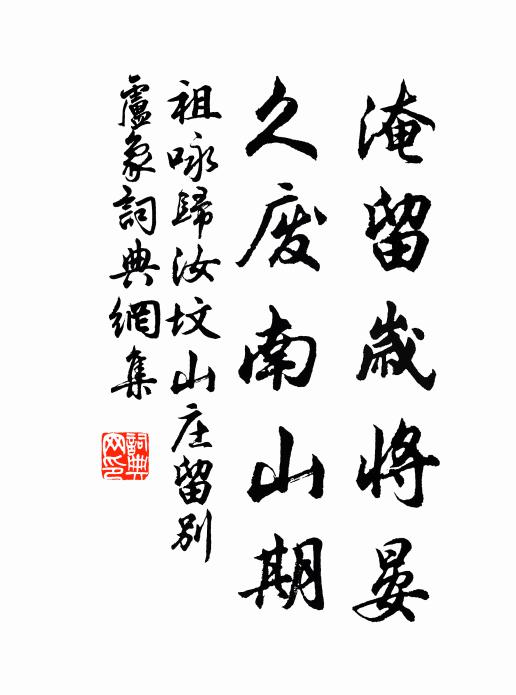 淹留歲將晏
久廢南山期
祖咏歸汝墳山庄留別
盧象詞典網集
詞典网印